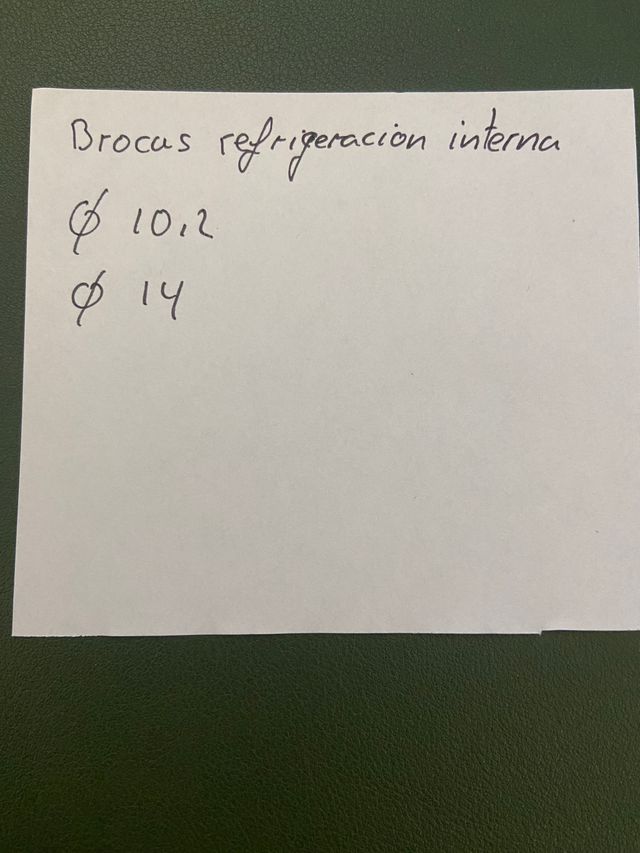 Brocas refrigeración interna
Ø 10,2
Ø 14